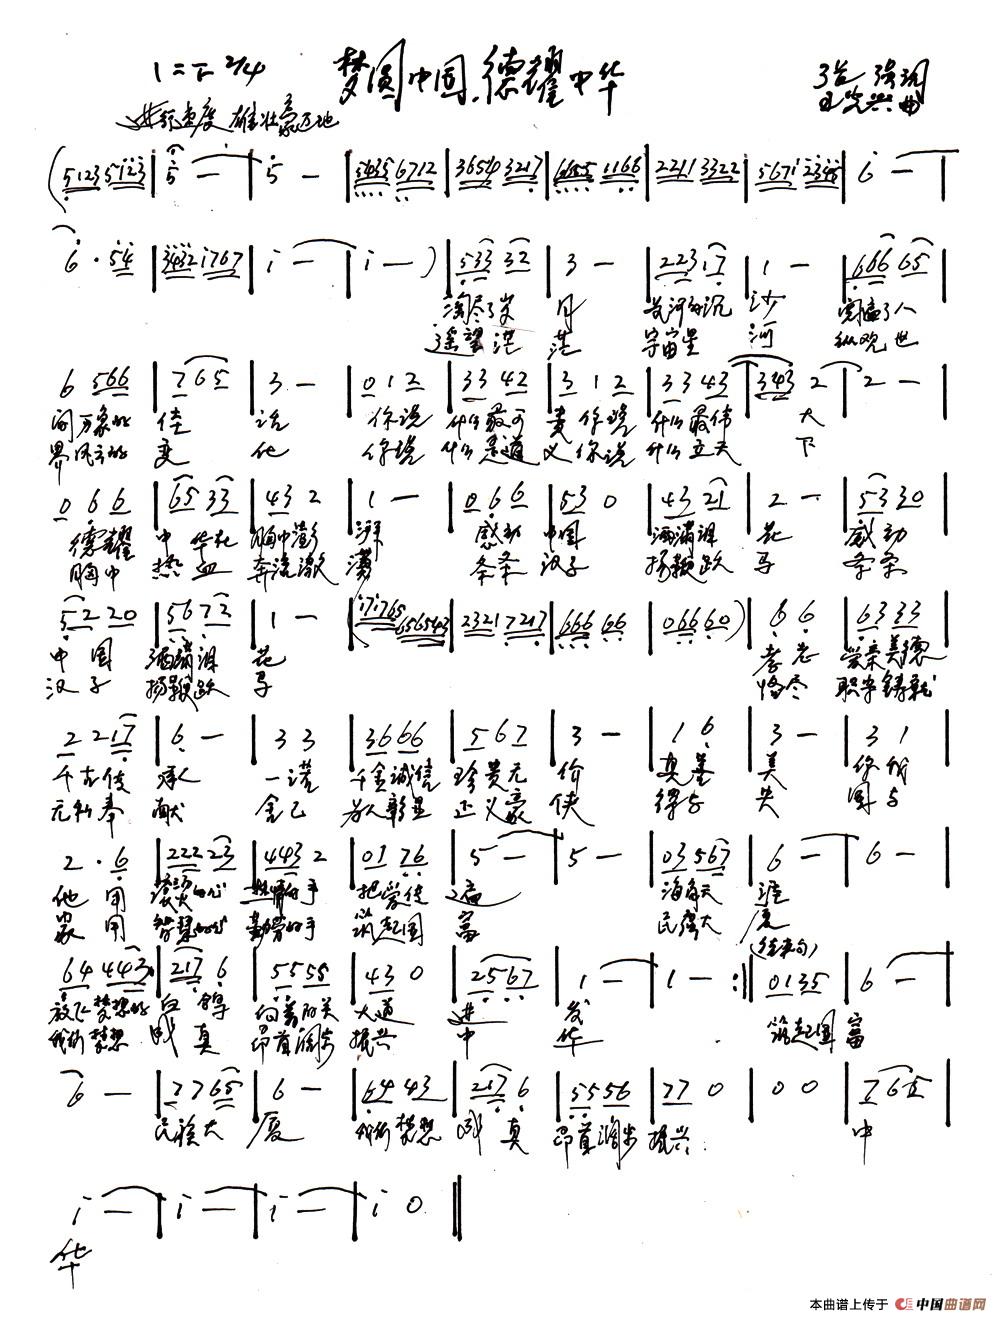 1=F 2/4 梦圆中国.德耀中华
进行速度 雄壮豪迈地
(5123 5123 | 5 — | 5 — | 5435 6712 | 3654 3217 | 6655 1166 | 2211 3322 | 5671 2345 | 6 — |
6 · 54 | 3432 1767 | i — | i — ) | 533 32 | 3 — | 223 17 | 1 — | 666 65 |
淘尽了岁 月 长河的沉 沙 阅遍了人
遥望 茫 茫 宇宙星 河 纵观 世
6 566 | 765 | 3 — | 0 1 2 | 33 42 | 3 1 2 | 33 43 | 343 2 | 2 — |
间 万象的 佳 话 你说 什么最可 贵 你说 什么最伟 大
界 风云的 变 化 你说 什么是道 义 你说 什么立天 下
0 6 6 | 65 33 | 43 2 | 1 — | 0 6 6 | 53 0 | 43 21 | 2 — | 53 30 |
德耀 中 华在 胸中澎 湃 感动 中国 洒满泪 花 感动
胸中 热 血 奔流激 条条 汉子 扬鞭跃 马 条条
52 20 | 56 72 | 1 — | (171765 656543 | 2321 7217 | 666 66 | 066 60) | 6 6 | 63 33 |
中 国 洒满泪 花 孝老 爱亲美德
汉 子 扬鞭跃 马 恪尽 职守铸就
2 217 | 6 — | 3 3 | 36 66 | 5 67 | 3 — | 1 6 | 3 — | 3 1 |
千古传 承 一诺 千金诚信 珍贵无 价 真善 美 你我
无私奉 献 舍己 为人彰显 正义豪 侠 国与
2 · 6 | 222 23 | 443 2 | 01 76 | 5 — | 5 — | 03 567 | 6 — | 6 — |
他 用 的心 的手 把爱传 遍 海角天 涯
家 用 智慧的心 勤劳的手 筑起国 富 民族大 厦
(结束句)
64 443 | 217 6 | 55 55 | 43 0 | 25 67 | 1 — | 1 — :‖ 01 35 | 6 — |
放飞梦想的 白 鸽 向着阳关 大道 进 发 筑起国 富
我的梦想 成 真 昂首阔步 振兴 中 华
6 — | 77 65 | 6 — | 64 43 | 217 6 | 55 56 | 77 0 | 0 0 | 765 |
民族大 厦 我的梦想 成 真 昂首阔步 振兴 中
i — | i — | i — | i 0 ‖
华
本曲谱上传于 中国曲谱网